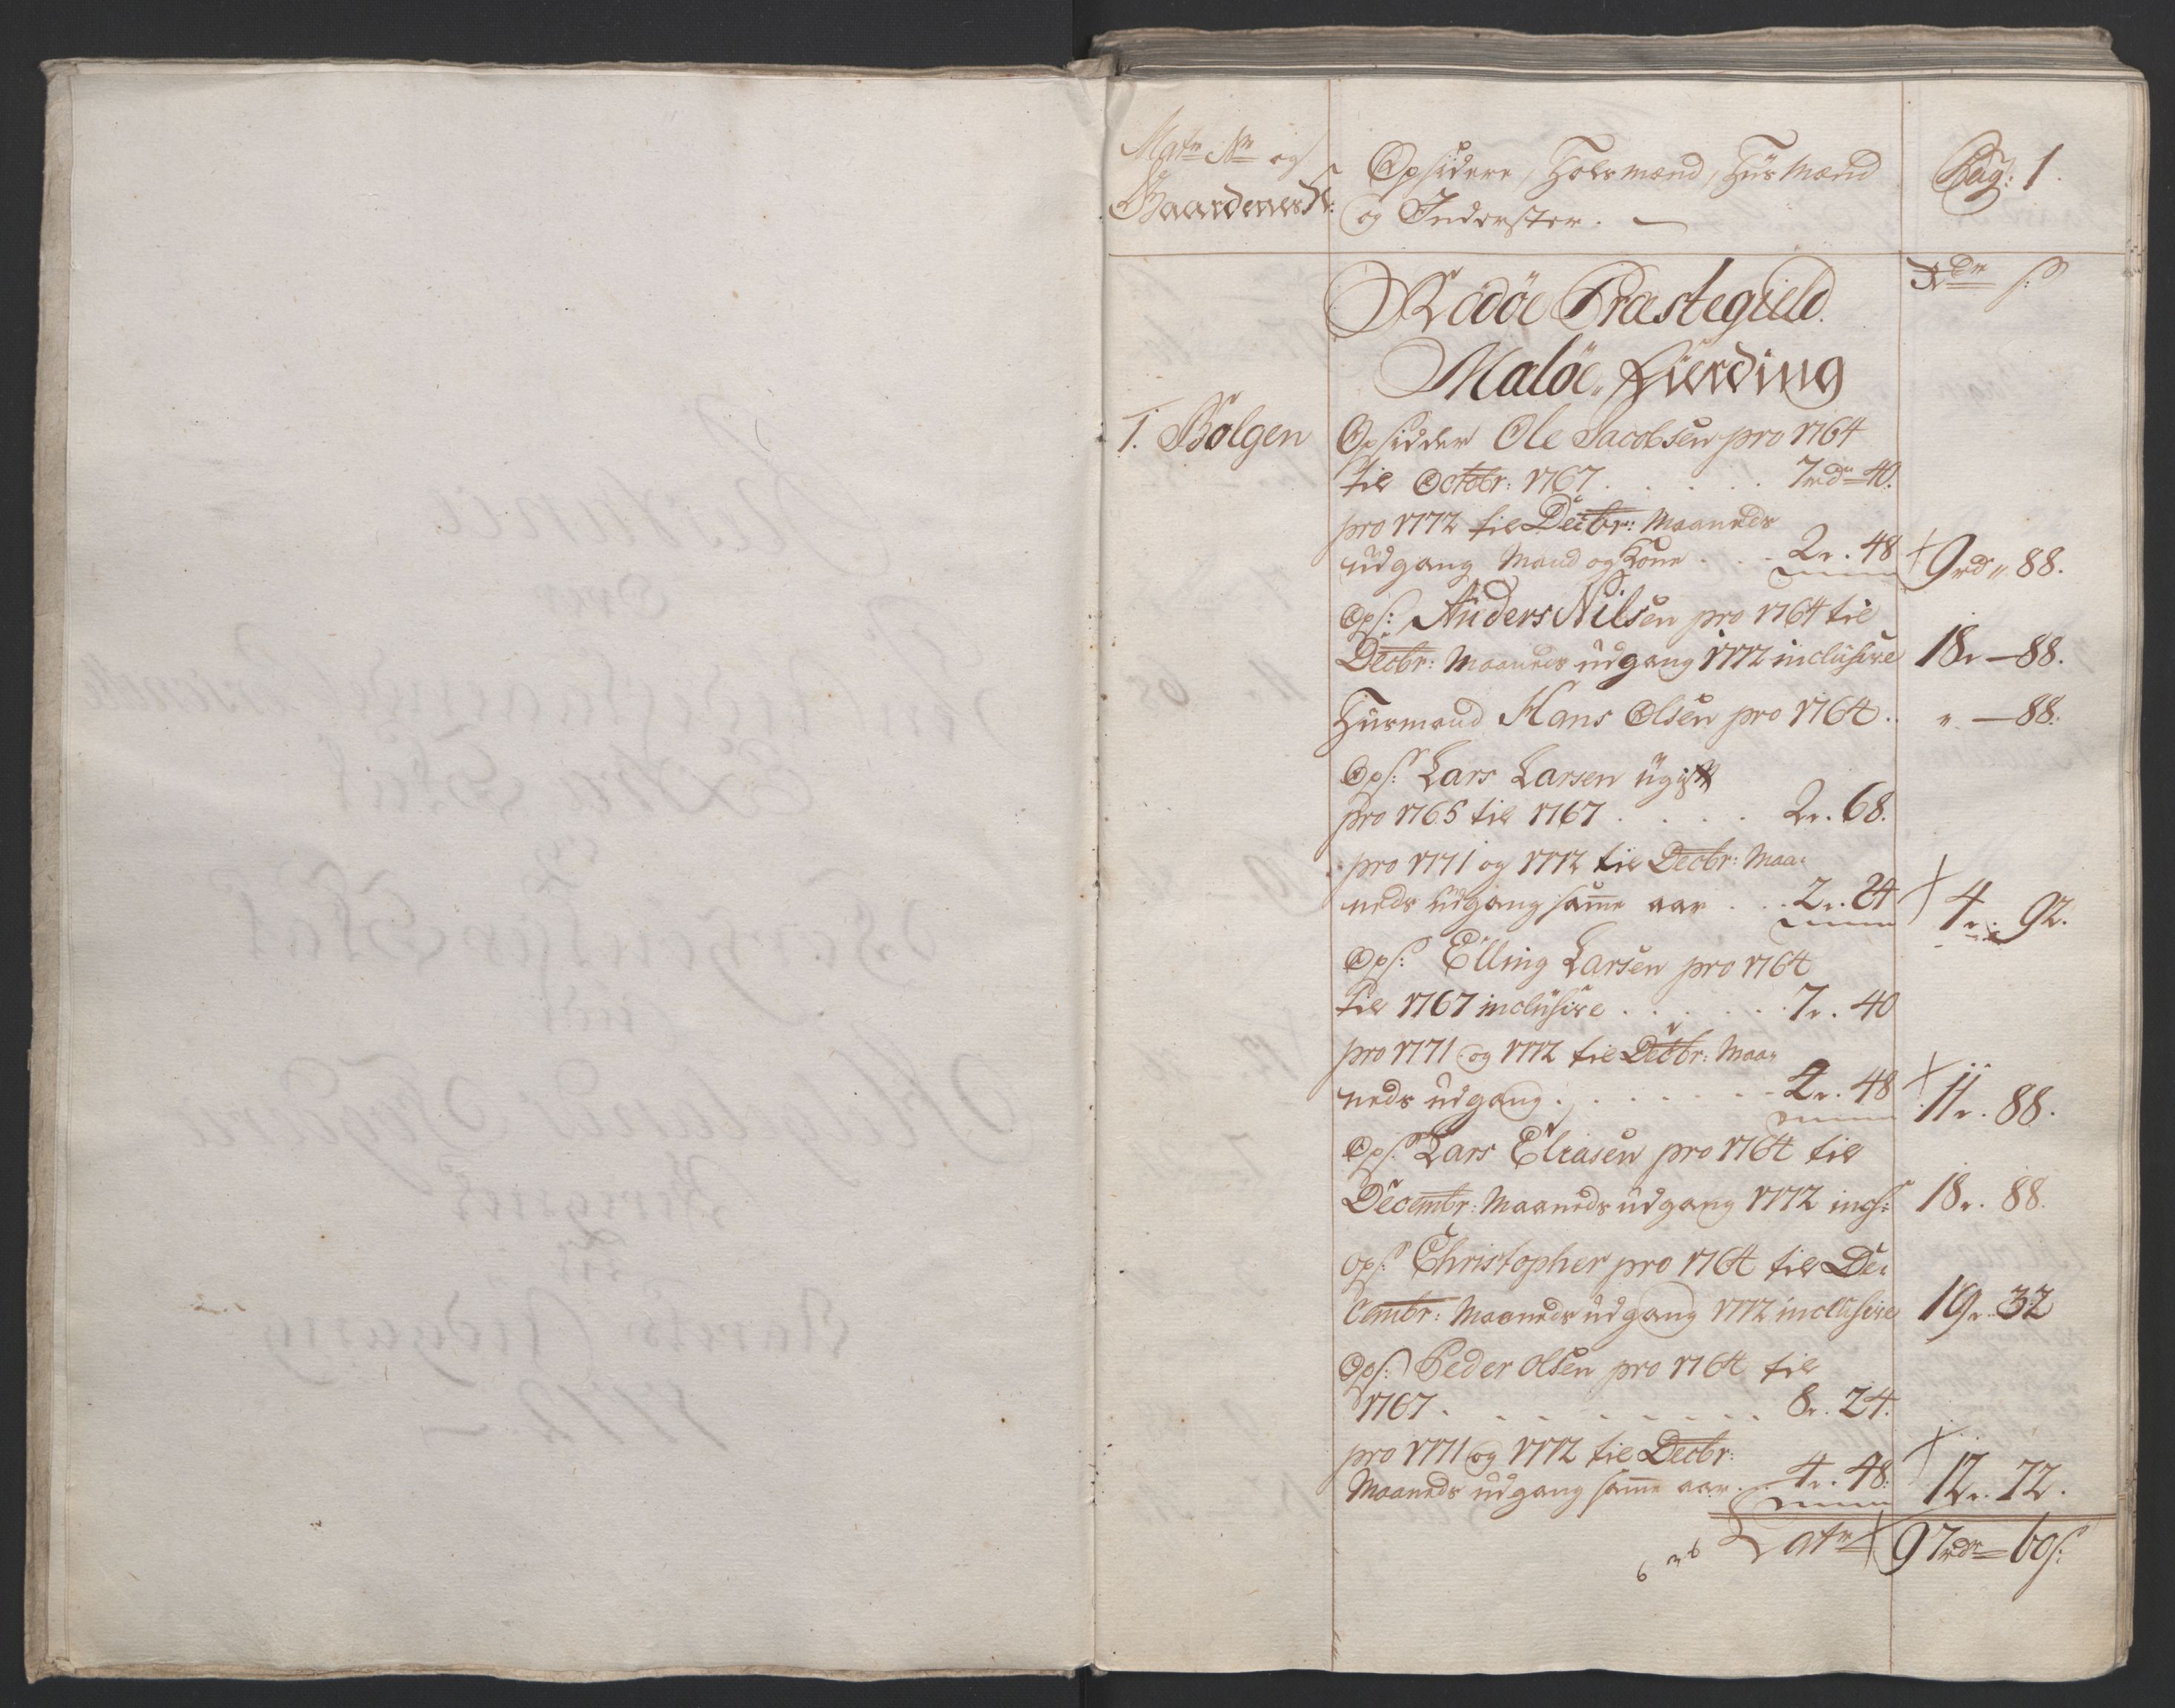 Matr. Nr. og
Gaardenes N:
Opsidere, Holsmænd, Huusmænd
og Inderster. —
Pag: 1.
Rdr ß:
Rödöe Præstegield.
Malöe Fierding
1. Bolgen
Opsidder Ole Jacobsen pro 1764
til Octobr: 1767. . . . . . 7rdr 40.
pro 1772 til Decbr: Maaneds
udgang Mand og Kone . . . 2r. 48
9rd " 88.
Ops: Anders Nilsen pro 1764 til
Decbr: Maaneds udgang 1772 inclusive
18r — 88.
Huusmand Hans Olsen pro 1764 .
" — 88.
Ops: Lars Larsen ugift
pro 1765 til 1767 . . . . 2r. 68.
pro 1771 og 1772 til Decbr: Maa:
neds udgang samme aar . . . 2r. 24
4r. 92.
Ops: Elling Larsen pro 1764
til 1767 inclusive . . . . . . 7r. 40
pro 1771 og 1772 til Decbr: Maa:
neds udgang . . . . . . . . 4r. 48
11r. 88.
Ops: Lars Eliasen pro 1764 til
Decembr: Maaneds udgang 1772 incl:
18r. 88.
Ops: Christopher pro 1764 til De:
cembr: Maaneds udgang 1772 inclusive
19r. 32
Ops: Peder Olsen pro 1764 til
1767 . . . . . . . . . 8r. 24.
pro 1771 og 1772 til Decbr:
Maaneds udgang samme aar . . 4r. 48.
12r. 72.
Latr 97rdr 60ß: